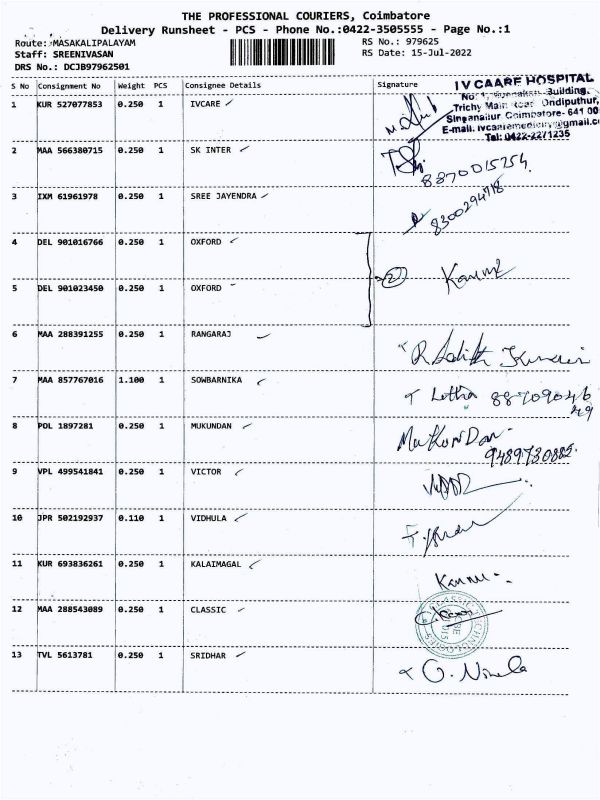 THE PROFESSIONAL COURIERS, Coimbatore
Delivery Runsheet - PCS - Phone No.:0422-3505555 - Page No.:1
Route: MASAKALIPALAYAM
RS No.: 979625
Staff: SREENIVASAN
RS Date: 15-Jul-2022
DRS No.: DCJB97962501
S No Consignment No Weight PCS Consignee Details Signature
IV CAARE HOSPITAL
Building,
Trichy Main Road Ondiputhur,
Singanallur Coimbatore- 641 00
Tel: 0422-2271235
1 KUR 527077853 0.250 1 IVCARE
2 MAA 566380715 0.250 1 SK INTER
8870015254
3 IXM 61961978 0.250 1 SREE JAYENDRA
8300294718
4 DEL 901016766 0.250 1 OXFORD
2
5 DEL 901023450 0.250 1 OXFORD
6 MAA 288391255 0.250 1 RANGARAJ
7 MAA 857767016 1.100 1 SOWBARNIKA
T Letha
8 POL 1897281 0.250 1 MUKUNDAN
MuKunDan
9489730882
9 VPL 499541841 0.250 1 VICTOR
10 JPR 502192937 0.110 1 VIDHULA
11 KUR 693836261 0.250 1 KALAIMAGAL
12 MAA 288543089 0.250 1 CLASSIC
CLASSIC TECHNOLOGIES
13 TVL 5613781 0.250 1 SRIDHAR